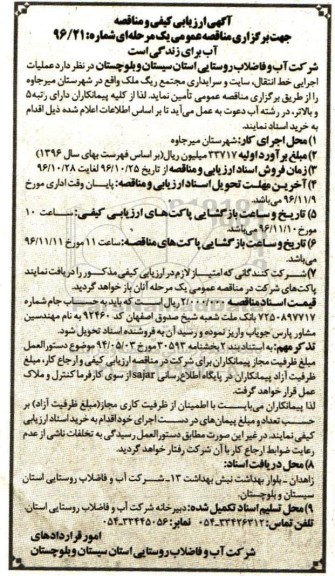 آگهی ارزیابی کیفی و مناقصه
جهت برگزاری مناقصه عمومی یک مرحله‌ای شماره: ۹۶/۲۱
آب برای زندگی است
شرکت آب و فاضلاب روستایی استان سیستان و بلوچستان در نظر دارد عملیات
اجرایی خط انتقال، سایت و سرایداری مجتمع ریگ ملک واقع در شهرستان میرجاوه
را از طریق برگزاری مناقصه عمومی تأمین نماید. لذا از کلیه پیمانکاران دارای رتبه ۵
و بالاتر، در رشته آب دعوت به عمل می‌آید تا بر اساس اطلاعات اعلام شده ذیل اقدام
به خرید اسناد نمایند.
۱) محل اجرای کار: شهرستان میرجاوه
۲) مبلغ برآورد اولیه: ۳۳۷۱۷ میلیون ریال (بر اساس فهرست بهای سال ۱۳۹۶)
۳) زمان فروش اسناد ارزیابی و مناقصه: از تاریخ ۹۶/۱۰/۲۵ لغایت ۹۶/۱۰/۲۸
۴) آخرین مهلت تحویل اسناد ارزیابی و مناقصه: پایان وقت اداری مورخ
۹۶/۱۱/۹ می‌باشد.
۵) تاریخ و ساعت بازگشایی پاکت‌های ارزیابی کیفی: ساعت ۱۰
مورخ ۹۶/۱۱/۱۰ می‌باشد.
۶) تاریخ و ساعت بازگشایی پاکت‌های مناقصه: ساعت ۱۱ مورخ ۹۶/۱۱/۱۱
می‌باشد.
۷) شرکت کنندگانی که امتیاز لازم در ارزیابی کیفی مذکور را دریافت نمایند
پاکت‌های شرکت در مناقصه عمومی یک مرحله آنان باز خواهد گردید.
قیمت اسناد مناقصه ۲/۰۰۰/۰۰۰ ریال است که باید به حساب جام شماره
۷۲۵۰۸۹۷۷۱۷ بانک ملت شعبه شیخ صدوق اصفهان کد ۹۲۴۶۰ به نام مهندسین
مشاور پارس جویاب واریز نموده و رسید آن به فروشنده اسناد تحویل شود.
تذکر مهم: به استناد بند ۲ بخشنامه ۳۰۵۹۳ مورخ ۹۴/۰۵/۰۳ موضوع دستورالعمل
مبلغ ظرفیت مجاز پیمانکاران برای شرکت در مناقصه ارزیابی کیفی و ارجاع کار، مبلغ
ظرفیت آزاد پیمانکاران در پایگاه اطلاع رسانی sajar از سوی کارفرما کنترل و ملاک
عمل قرار خواهد گرفت.
لذا پیمانکاران می‌بایست با اطمینان از ظرفیت کاری مجاز (مبلغ ظرفیت آزاد) بر
حسب تعداد و مبلغ پیمان‌های در دست اجرای خود اقدام به خرید اسناد ارزیابی
کیفی نمایند. در غیر این صورت مطابق دستورالعمل رسیدگی به تخلفات ناشی از عدم
رعایت ضوابط ارجاع کار با آن شرکت رفتار خواهد گردید.
۸) محل دریافت اسناد:
زاهدان - بلوار بهداشت نبش بهداشت ۱۳ - شرکت آب و فاضلاب روستایی استان
سیستان و بلوچستان.
۹) محل تسلیم اسناد تکمیل شده: دبیرخانه شرکت آب و فاضلاب روستایی استان.
تلفن تماس: ۳۳۴۲۶۳۱۲-۰۵۴ نمابر: ۳۳۴۴۵۰۵۶-۰۵۴
امور قراردادهای
شرکت آب و فاضلاب روستایی استان سیستان و بلوچستان